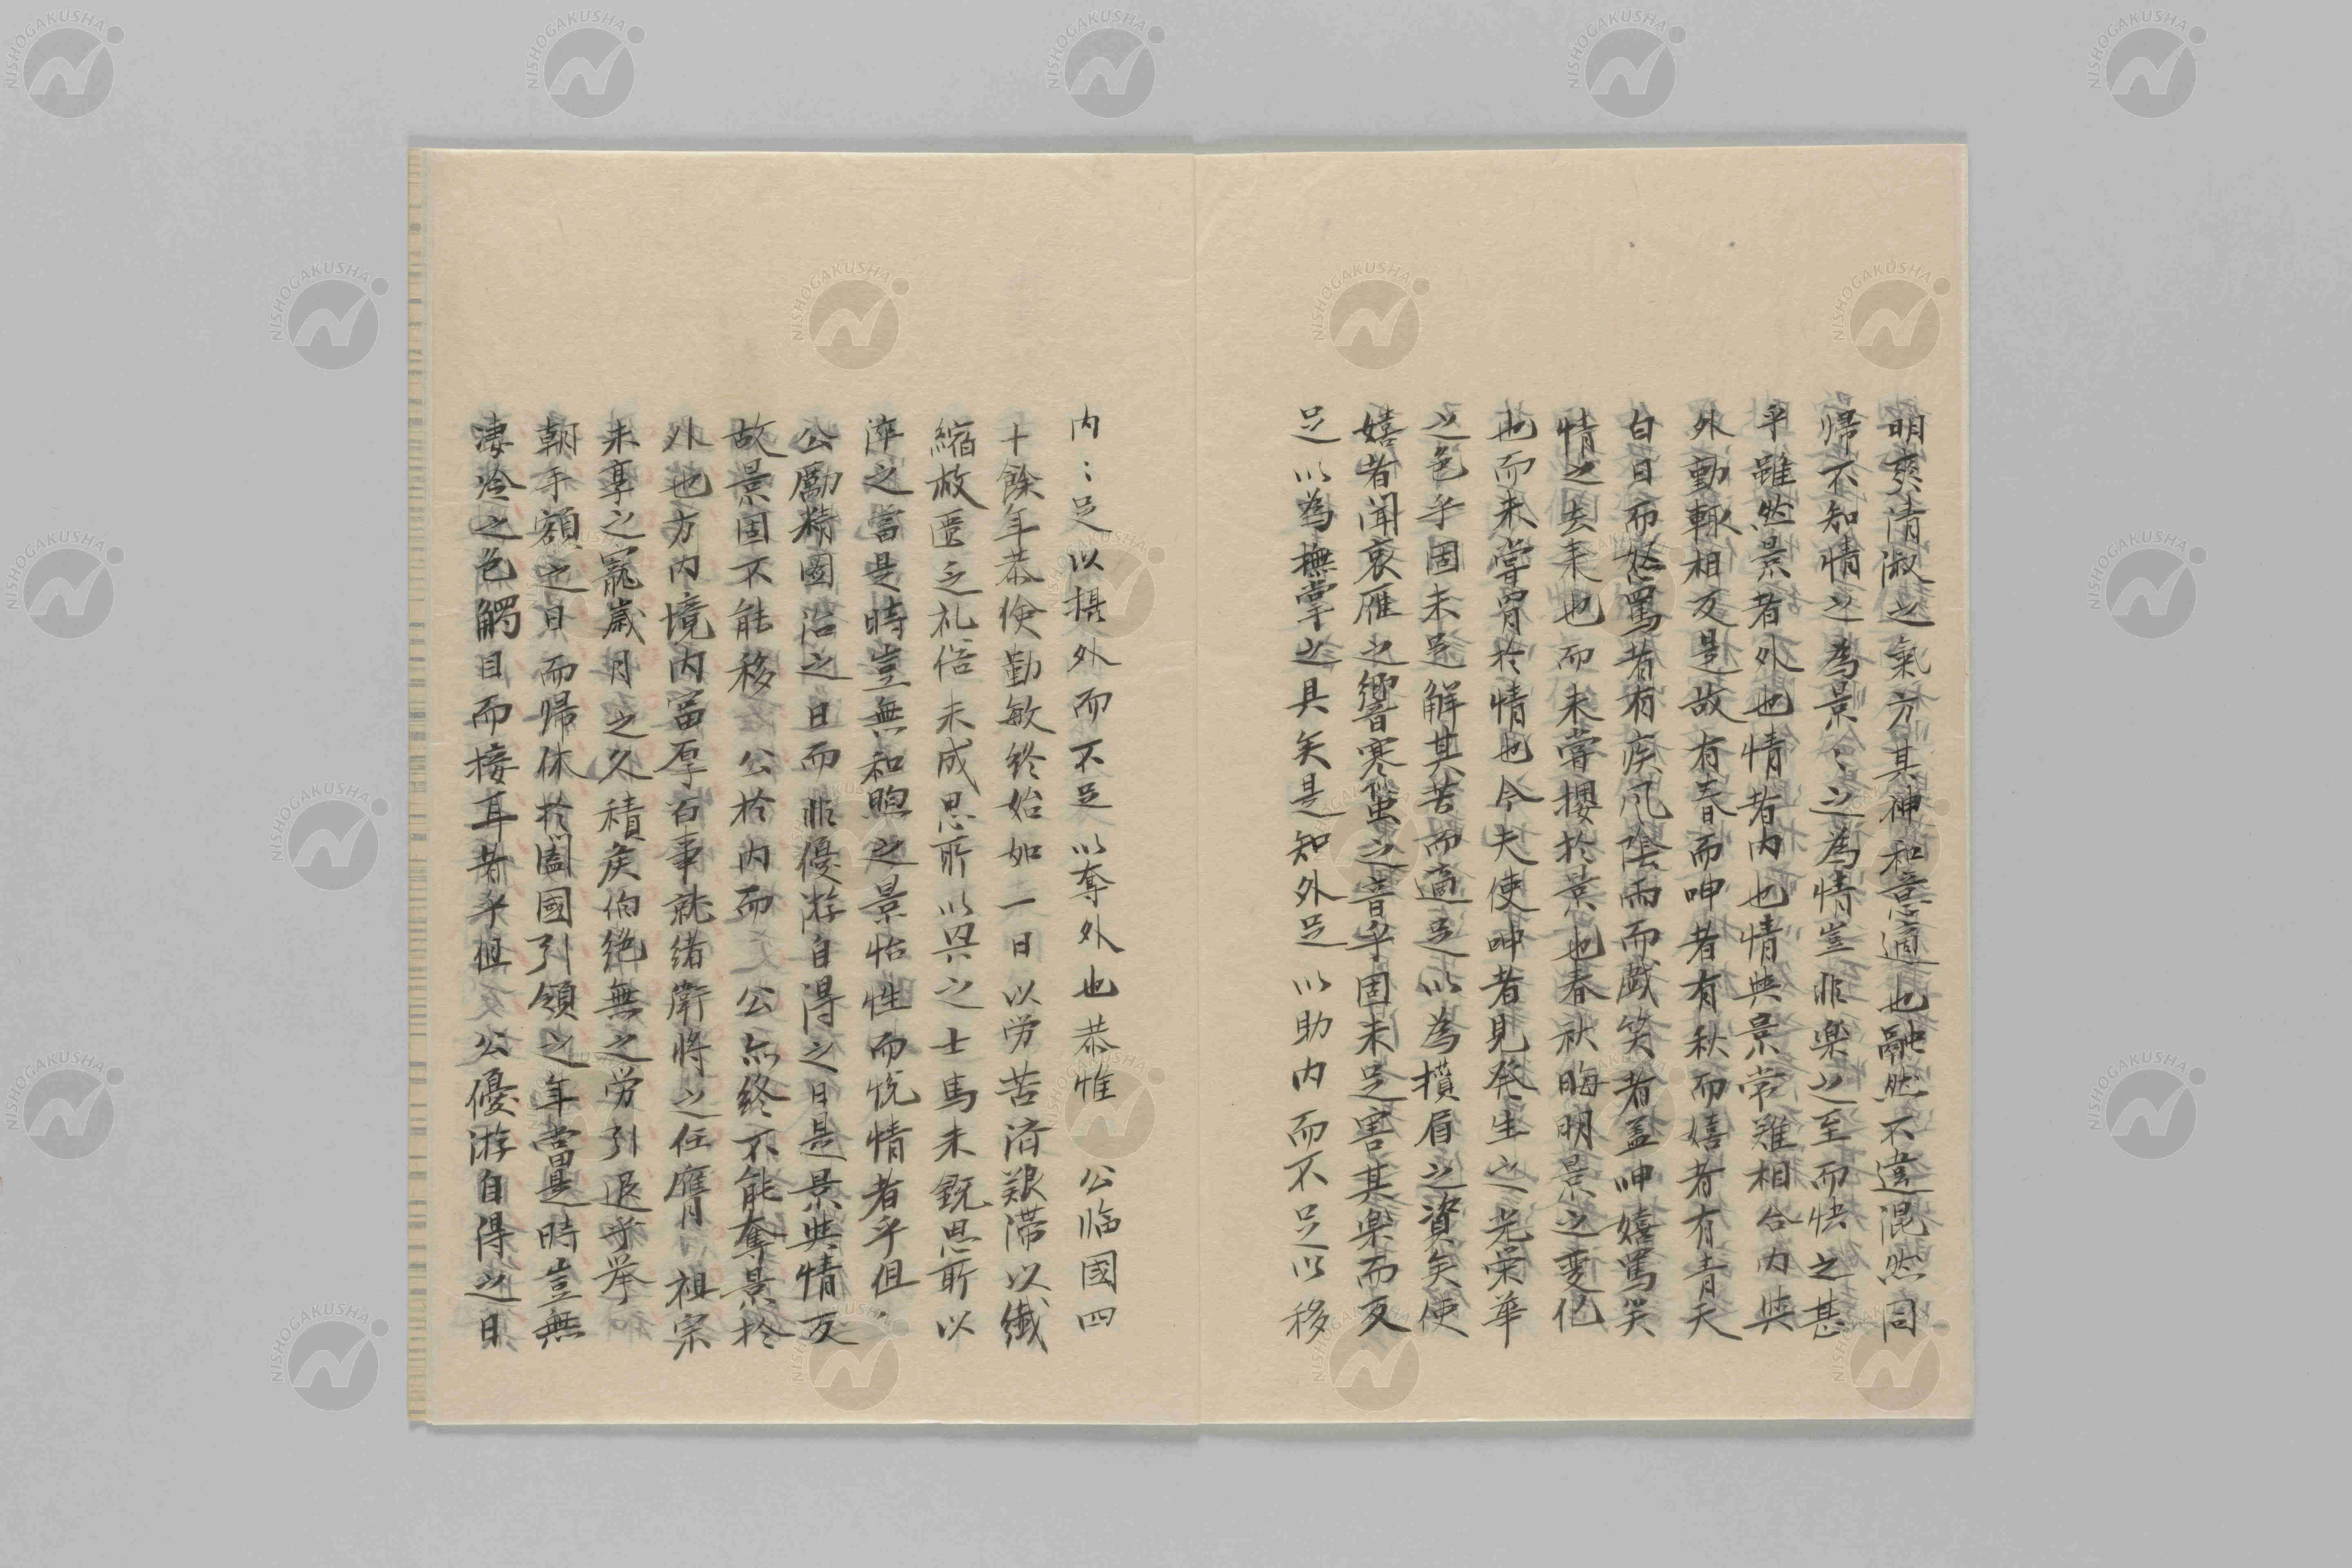 明爽清淑之氣方其神和意適也融然不違混然同
帰不知情之為景〻之為情豈非楽之至而快之甚
乎雖然景者外也情者内也情與景常難相合内與
外動輙相反是故有春而呻者有秋而嬉者有青天
白日而怒罵者有疾風陰雨而戯笑者盖呻嬉罵笑
情之去来也而未嘗攖於景也春秋晦明景之変化
也而未嘗胃於情也今夫使呻者見発生之光栄華
之色乎固未足解其苦而適足以為擯眉之資矣使
嬉者聞哀雁之響寒蛩之音乎固未足害其楽而反
足以為撫掌之具矣是知外足以助内而不足以移
内〻足以摂外而不足以奪外也恭惟 公臨國四
十餘年恭倹勤敏終始如一日以労苦済艱滞以繊
縮救匱乏礼俗未成思所以興之士馬未銳思所以
淬之當是時豈無和煦之景怡性而悦情者乎但
公勵精圖治之日而非優游自得之日是景與情反
故景固不能移 公於内而 公亦終不能奪景於
外也方内境内富厚百事就緒衛将之任膺 祖宗
未享之寵歳月之久積侯伯絶無之労引退乎挙
朝手額之日而帰休於闔國引領之年當是時豈無
凄冷之色觸目而接耳者乎但 公優游自得之日